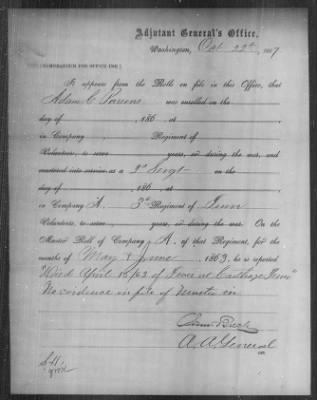 Adjutant General's Office,
Washington, Oct 22d, 1867
[MEMORANDUM FOR OFFICE USE.]
It appears from the Rolls on file in this Office, that
Adam C Parsons was enrolled on the
day of , 186 , at
in Company , Regiment of
Volunteers, to serve years, or during the war, and
mustered into service as a 2d Sergt on the
day of , 186 , at
in Company A. 5th Regiment of Tenn
Volunteers, to serve years, or during the war. On the
Muster Roll of Company A. of that Regiment, for the
months of May & June 1863, he is reported
"Died April 63 of Fever at Carthage Tenn"
No evidence in file of muster in
A. A. General